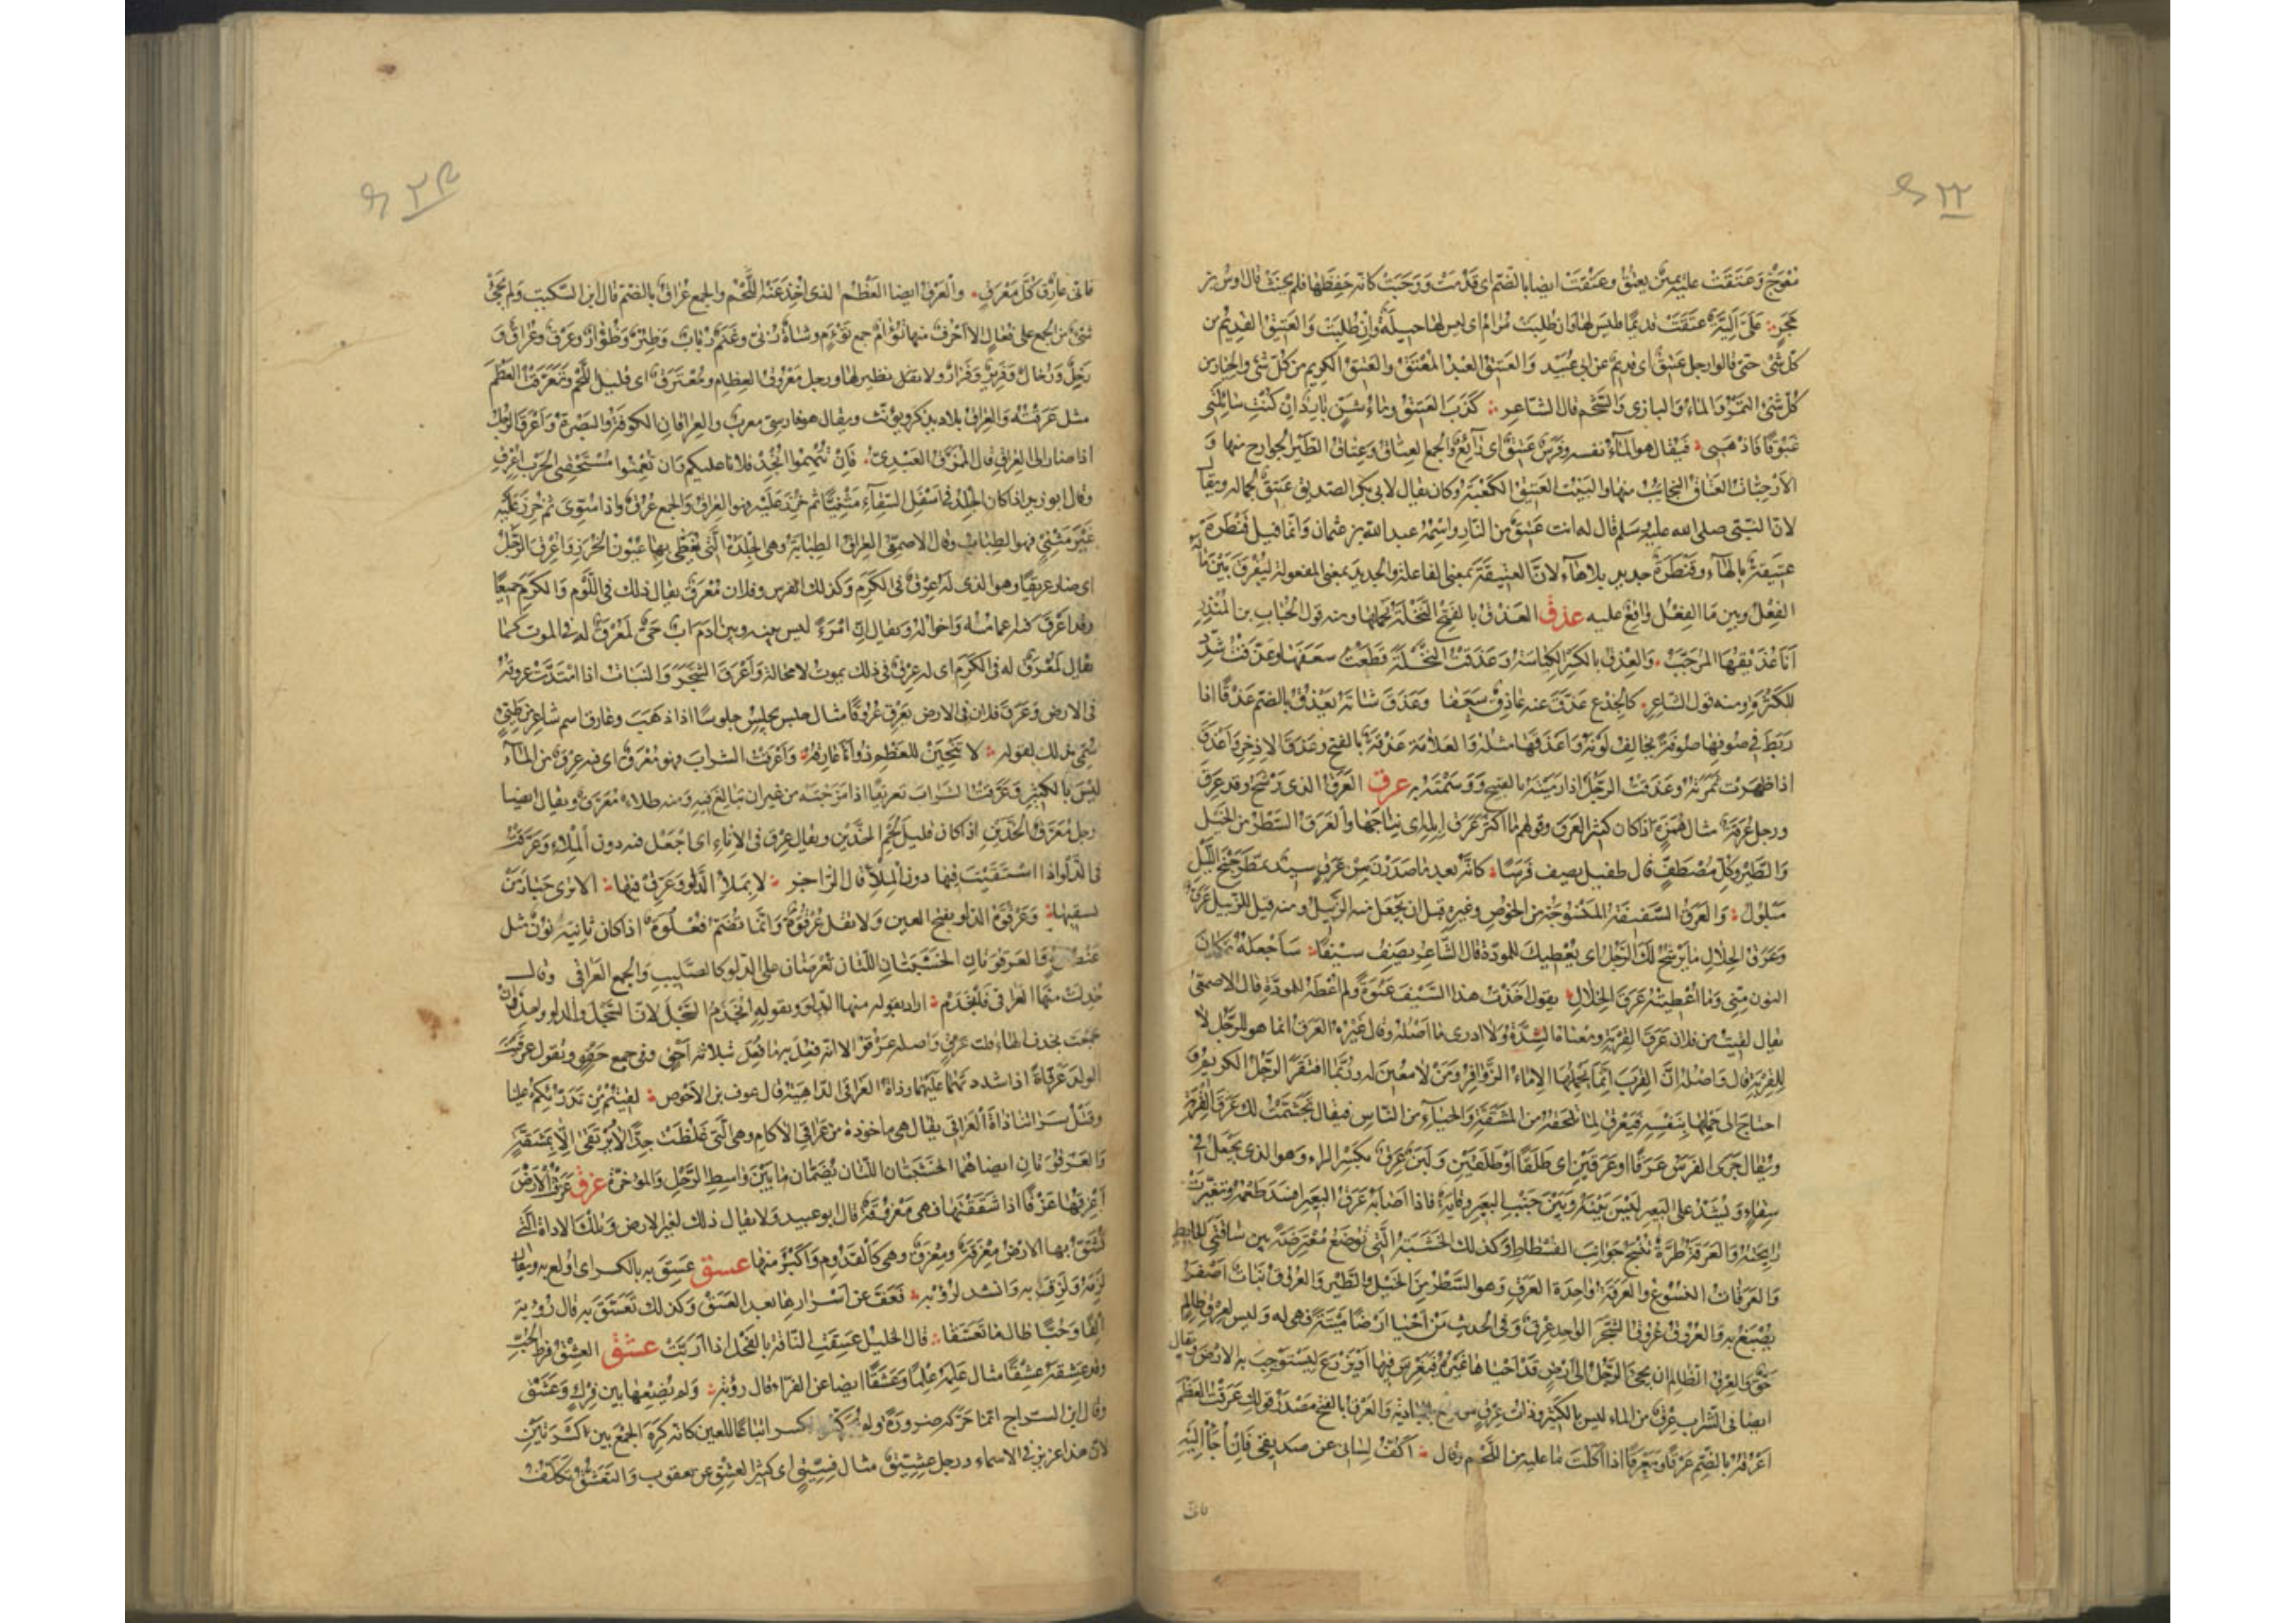 معوج وعتقت عليه يمين يعتق وعتقت ايضا بالضم اى قدمت ووجبت كانه حفظها فلم يحنث قال اوس بن
حجر عَلَىَّ اَلِيَّةٌ عَتَقَتْ قديمًا فليس لها وان طلبت مرام اى ليس لها حيلة وان طلبت والعتيق القديم من
كل شئ حتى قالوا رجل عتيق اى قديم عن ابى عبيد والعتيق العبد المعتق والعتيق الكريم من كل شئ والخيار من
كل شئ التمر والماء والبازى والشحم قال الشاعر كذب العتيق وماء شن بارد ان كنت سائلتى
غبوقا فاذهبى فيقال هو الماء نفسه وفرس عتيق اى رائع والجمع العتاق وعتاق الطير الجوارح منها و
الارحبيات العتاق النجائب منها والبيت العتيق الكعبة وكان يقال لابى بكر الصديق عتيق لجماله ويقا
لان النبى صلى الله عليه وسلم قال له انت عتيق من النار واسمه عبد الله بن عثمان وانما قيل قنطرة
عتيقة بالهاء وقنطرة جديد بلا هاء لان العتيقة بمعنى الفاعلة والجديد بمعنى المفعولة ليفرق بين ما له
الفعل وبين ما الفعل واقع عليه عذق العذق بالفتح النخلة بحملها ومنه قول الحباب بن المنذر
انا عذيقها المرجب والعذق بالكسر الكباسة وعذقت النخلة قطعت سعفها وعذقت شدد
للكثرة ومنه قول الشاعر كالجذع عذق عنه عاذق سعفا وعذق شاته يعذق بالضم عذقا اذا
ربط فى صوفها صوفة تخالف لونه واعذقها مثله والعلامة عذقة بالفتح وعذق الاذخر واعذق
اذا ظهرت ثمرته وعذقت الرجل اذا رميته بالقبيح ووسمته به عرق العرق الذى رشح وقد عرق
ورجل عرقة مثال همزة اذا كان كثير العرق وقولهم ما اكثر عرق ابله اى نتاجها والعرق السطر من الخيل
والطير وكل مصطف قال طفيل يصف فرسا كانه بعد ما صدرن من عرق سيد تمطر جنح الليل
مبلول والعرق السفيفة المنسوجة من الخوص وغيره قبل ان يجعل منه الزنبيل ومنه قيل للزبيل عرق
وعرق الخلال ما يرشح لك الرجل اى يعطيك للمودة قال الشاعر يصف سيفا ساجعله مكان
النون منى وما اعطيته عرق الخلال يقول اخذت هذا السيف عنوة ولم اعطه للمودة قال الاصمعى
يقال لقيت من فلان عرق القربة ومعناه الشدة ولا ادرى ما اصله وقال غيره العرق انما هو للرجل لا
للقربة قال واصله ان القرب انما يحملها الاماء الزوافر ومن لا معين له وربما افتقر الرجل الكريم
احتاج الى حملها بنفسه فيعرق لما يلحقه من المشقة والحياء من الناس فيقال تجشمت لك عرق القربة
ويقال جرى الفرس عرقا او عرقين اى طلقا او طلقين ولبن عرق بكسر الراء وهو الذى يجعل فى
سقاء ويشد على البعير ليس بينه وبين جنب البعير وقاية فاذا اصابه عرق البعير فسد طعمه وتغيرت
رائحته والعرقة طرة تنسج جوانب الفسطاط وكذلك الخشبة التى توضع معترضة بين سافتى الحائط
والعرقات النسوع والعرقة واحدة العرق وهو السطر من الخيل والطير والعروق نبات اصفر
يصبغ به والعروق عروق الشجر الواحد عرق وفى الحديث من احيا ارضا ميتة فهى له وليس لعرق ظالم
حق والعرق الظالم ان يجئ الرجل الى ارض قد احياها غيره فيغرس فيها او يزرع ليستوجب به الارض ويقال
ايضا فى الشراب عرق من الماء ليس بالكثير وذات عرق بالبادية والعرق بالفتح مصدر قولك عرقت العظم
اعرقه بالضم عرقا ومعرقا اذا اكلت ما عليه من اللحم وقال اكف لسانى عن صديقى فان اجأ اليه
فانى
فانى عارق كل معرق والعرق ايضا العظم الذى اخذ عنه اللحم والجمع عراق بالضم قال ابن السكيت ولم يجئ
شئ من الجمع على فعال الا احرف منها تؤام جمع توءم وشاة ربى وغنم رباب وظئر وظؤار وعرق وعراق و
رخل ورخال وفرير وفرار ولا تقل نظير لها ورجل معروق العظام ومعترق اى قليل اللحم وتعرقت العظم
مثل عرقته والعراق بلاد يذكر ويؤنث ويقال هو فارسى معرب والعراقان الكوفة والبصرة واعرق الرجل
اذا صار الى العراق قال الممزق العبدى فان تتهموا انجد خلافا عليكم وان تعمنوا مستحقبى الحرب اعرق
وقال ابو زيد اذا كان الجلد فى اسفل السقاء مثنيا ثم خرز عليه فهو العراق والجمع عرق واذا سوى ثم خرز عليه
غير مثنى فهو الطباب وقال الاصمعى العراق الطبابة وهى الجلدة التى تغطى بها عيون الخرز واعرق الرجل
اى صار عريقا وهو الذى له عرق فى الكرم وكذلك الفرس وفلان معرق يقال ذلك فى اللؤم والكرم جميعا
وقد اعرق فيه اعمامه واخواله ويقال ان امرءً ليس بينه وبين ادم اب حى لمعرق له فى الموت كما
يقال لمعرق له فى الكرم اى له عرق فى ذلك يموت لا محالة واعرق الشجر والنبات اذا امتدت عروقه
فى الارض وعرق فلان فى الارض يعرق عروقا مثال جلس يجلس جلوسا اذا ذهب وعارق اسم شاعر من طيئ
سمى بذلك لقوله لا نتحين للعظم ذو انا عارقه واعرقت الشراب فهو معرق اى فيه عرق من الماء
ليس بالكثير وعرقت الشراب تعريقا اذا مزجته من غير ان تبالغ فيه ومنه طلاء معرق ويقال ايضا
رجل معرق الخدين اذا كان قليل لحم الخدين ويقال عرق فى الاناء اى اجعل فيه دون الملء وعرقت
فى الدلو اذا استقيت فيها دون الملأ قال الراجز لا تملأ الدلو وعرق فيها الا ترى حبار من
يسقيها وعرقوة الدلو بفتح العين ولا تقل عرقوة وانما تضم فعلوة اذا كان ثانيه نون مثل
عنصوة والعرقوتان الخشبتان اللتان تعرضان على الدلو كالصليب والجمع العراقى وقال
خذلت منها العراقى فانجذم اراد بقوله منها الدلو وبقوله انجذم السجل لان السجل والدلو واحد فان
جمعت بحذف الهاء قلت عرق واصله عرقو الا انه فعل به ما فعل بثلاثة احق فى جمع حقو وتقول عرقيت
الدلو عرقاة اذا شددتهما عليها وذات العراقى الداهية قال عوف بن الاحوص لقيتم من تدرئكم علينا
وقتل سراتنا ذات العراقى يقال هى ماخوذة من عراقى الاكام وهى التى غلظت جدا لا ترتقى الا بمشقة
والعرقوتان ايضا هما الخشبتان اللتان تضمان ما بين واسط الرحل والمؤخرة عزق عزقت الارض
اعزقها عزقا اذا شققتها فهى معزوقة قال ابو عبيد ولا يقال ذلك لغير الارض وتلك الاداة التى
تشق بها الارض معزقة ومعزق وهى كالقدوم واكبر منها عسق عسق به بالكسر اى اولع به ويقال
لزمه ولزق به وانشد لرؤبة فعف عن اسرارها بعد العسق وكذلك تعسق به قال رؤبة
الفا وحبا طال ما تعسقا قال الخليل عسقت الناقة بالفحل اذا اربت عشق العشق فرط الحب
وقد عشقه عشقا مثال علمه علما وعشقا ايضا عن الفراء قال رؤبة ولم يضعها بين فرك وعشق
وقال ابن السراج انما حركه ضرورة ولم يحركه بالكسر اتباعا للعين كانه كره الجمع بين كسرتين
لان هذا عزيز فى الاسماء ورجل عشيق مثال فسيق اى كثير العشق عن يعقوب والتعشق تكلف